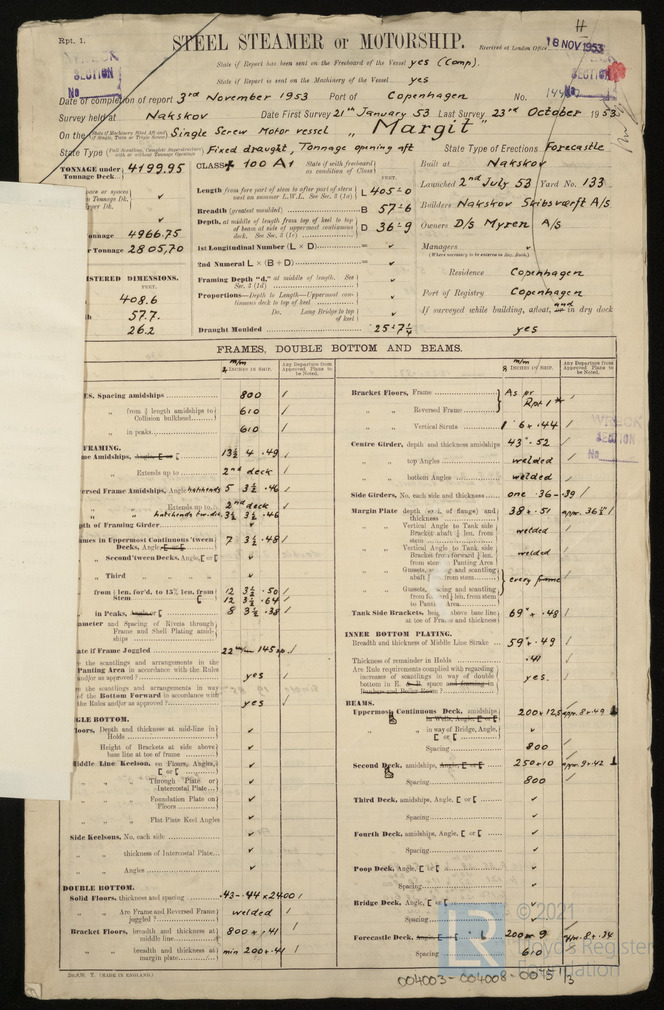 Rpt. 1.
H
STEEL STEAMER or MOTORSHIP.
Received at London Office
18 NOV 1953
WRECK
SECTION
No
State if Report has been sent on the Freeboard of the Vessel yes (Comp).
State if Report is sent on the Machinery of the Vessel yes
Date of completion of report 3rd November 1953 Port of Copenhagen No.
Survey held at Nakskov Date First Survey 21st January 53 Last Survey 23rd October 1953
On the Single Screw Motor vessel "Margit"
State Type Fixed draught, Tonnage opening aft State Type of Erections Forecastle
TONNAGE under Tonnage Deck 4199.95
CLASS + 100 A1 State if with freeboard as condition of Class
Built at Nakskov
Launched 2nd July 53 Yard No. 133
Length from fore part of stem to after part of stern post on summer L.W.L. See Sec. 3 (1a) L 405-0
Breadth (greatest moulded) B 57-6
Builders Nakskov Skibsværft A/S
Depth, at middle of length from top of keel to top of beam at side of uppermost continuous deck. See Sec. 3 (1c) D 36-9
Owners D/S Myren A/S
onnage 4966.75
r Tonnage 2805,70
1st Longitudinal Number (L × D) =
Managers
(Where necessary to be entered in Reg. Book.)
2nd Numeral L × (B + D) =
ISTERED DIMENSIONS.
FEET.
Framing Depth "d," at middle of length. See Sec. 3 (1d)
Residence Copenhagen
408.6
Proportions—Depth to Length—Uppermost continuous deck to top of keel
Port of Registry Copenhagen
57.7.
Do. Long Bridge to top of keel
If surveyed while building, afloat, and in dry dock
26.2
Draught Moulded 25-7¼
yes
FRAMES, DOUBLE BOTTOM AND BEAMS.
m/m
INCHES IN SHIP.
Any Departure from Approved Plans to be Noted.
ES, Spacing amidships 800
" from ⅕ length amidships to Collision bulkhead 610
" in peaks 610
FRAMING.
me Amidships, Angle, [ or [ 13½ 4 .49
" Extends up to 2nd deck
versed Frame Amidships, Angle hatchends 5 3½ .46
" Extends up to 2nd deck
3½ 3½ .46
pth of Framing Girder
ames in Uppermost Continuous 'tween Decks, Angle, [ or [ 7 3½ .48
" Second 'tween Decks, Angle, [ or [
" Third " " "
" from ⅕ len. for'd. to 15% len. from Stem 12 3½ .50
12 3½ .64
" in Peaks, Angle or [ 8 3½ .38
ameter and Spacing of Rivets through Frame and Shell Plating amidships
ate if Frame Joggled
e the scantlings and arrangements in the Panting Area in accordance with the Rules and/or as approved? yes
e the scantlings and arrangements in way of the Bottom Forward in accordance with the Rules and/or as approved? yes
GLE BOTTOM.
loors, Depth and thickness at mid-line in Holds
" Height of Brackets at side above base line at toe of frame
iddle Line Keelson, on Floors, Angles, [ or [
" " Through Plate or Intercostal Plate
" " Foundation Plate on Floors
" " Flat Plate Keel Angles
Side Keelsons, No. each side
" " thickness of Intercostal Plate
" " Angles
DOUBLE BOTTOM.
Solid Floors, thickness and spacing .43-.44 x 2400
" " Are Frame and Reversed Frame joggled? welded
Bracket Floors, breadth and thickness at middle line 800 x .41
" " breadth and thickness at margin plate min 200 x .41
m/m
INCHES IN SHIP.
Any Departure from Approved Plans to be Noted.
Bracket Floors, Frame As pr Rpt 1*
" " Reversed Frame
" " Vertical Struts
Centre Girder, depth and thickness amidships 43" .52
" " top Angles welded
" " bottom Angles welded
Side Girders, No. each side and thickness one .36-.39
Margin Plate depth (excl. of flange) and thickness 38 x .51
" " Vertical Angle to Tank side Bracket abaft ¼ len. from stem welded
" " Vertical Angle to Tank side Bracket from forward ¼ len. from stem to Panting Area welded
" " Gussets, spacing and scantling abaft ¼ len. from stem every frame
" " Gussets, spacing and scantling from forward ¼ len. from stem to Panting Area
Tank Side Brackets, height above base line at toe of Frame and thickness 69" x .48
INNER BOTTOM PLATING.
Breadth and thickness of Middle Line Strake 59" .49
Thickness of remainder in Holds .41
Are Rule requirements complied with regarding increases of scantlings in way of double bottom in E. space and framing in Bunkers and Boiler Room? yes.
BEAMS.
Uppermost Continuous Deck, amidships, in Wells, Angle, [ or [ 200 x 12.5 appr. 8 x .49
" " in way of Bridge, Angle, [ or [
Spacing 800
Second Deck, amidships, Angle, [ or [ 250 x 10 appr. 9 x .42
Spacing 800
Third Deck, amidships, Angle, [ or [
Spacing
Fourth Deck, amidships, Angle, [ or [
Spacing
Poop Deck, Angle, [ or [
Spacing
Bridge Deck, Angle, [ or [
Spacing
Forecastle Deck, Angle, [ or [ 200 x 9 appr. 8 x .34
Spacing 610
WRECK
SECTION
No
LR
© 2021
Lloyd's Register
Foundation
T. (MADE IN ENGLAND.)
004003-004008-0045 1/3